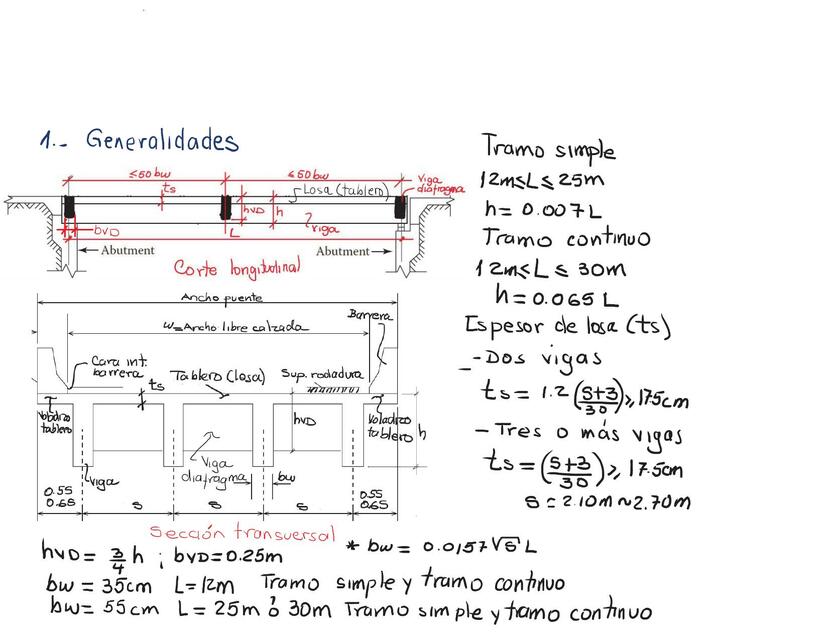 1.- Generalidades
≤50 bw
≤50 bw
Viga diafragma
ts
Losa (tablero)
hVD
h
bVD
L
viga
Abutment
Abutment
Corte longitudinal
Ancho puente
Barrera
w=Ancho libre calzada
Cara int. barrera
ts
Tablero (losa)
Sup. rodadura
Voladizo tablero
hVD
Voladizo tablero
h
Viga diafragma
viga
bw
0.55
0.65
s
s
s
0.55
0.65
Sección transversal
hVD = 3/4 h ; bVD=0.25m
* bw = 0.0157√s L
bw = 35cm L=12m Tramo simple y tramo continuo
bw = 55cm L = 25m ó 30m Tramo simple y tramo continuo
Tramo simple
12m≤L≤25m
h=0.007L
Tramo continuo
12m≤L≤30m
h=0.065L
Espesor de losa (ts)
- Dos vigas
ts = 1.2 (s+3/30) ≥ 17.5cm
- Tres o más vigas
ts = (s+3/30) ≥ 17.5cm
s = 2.10m ~ 2.70m